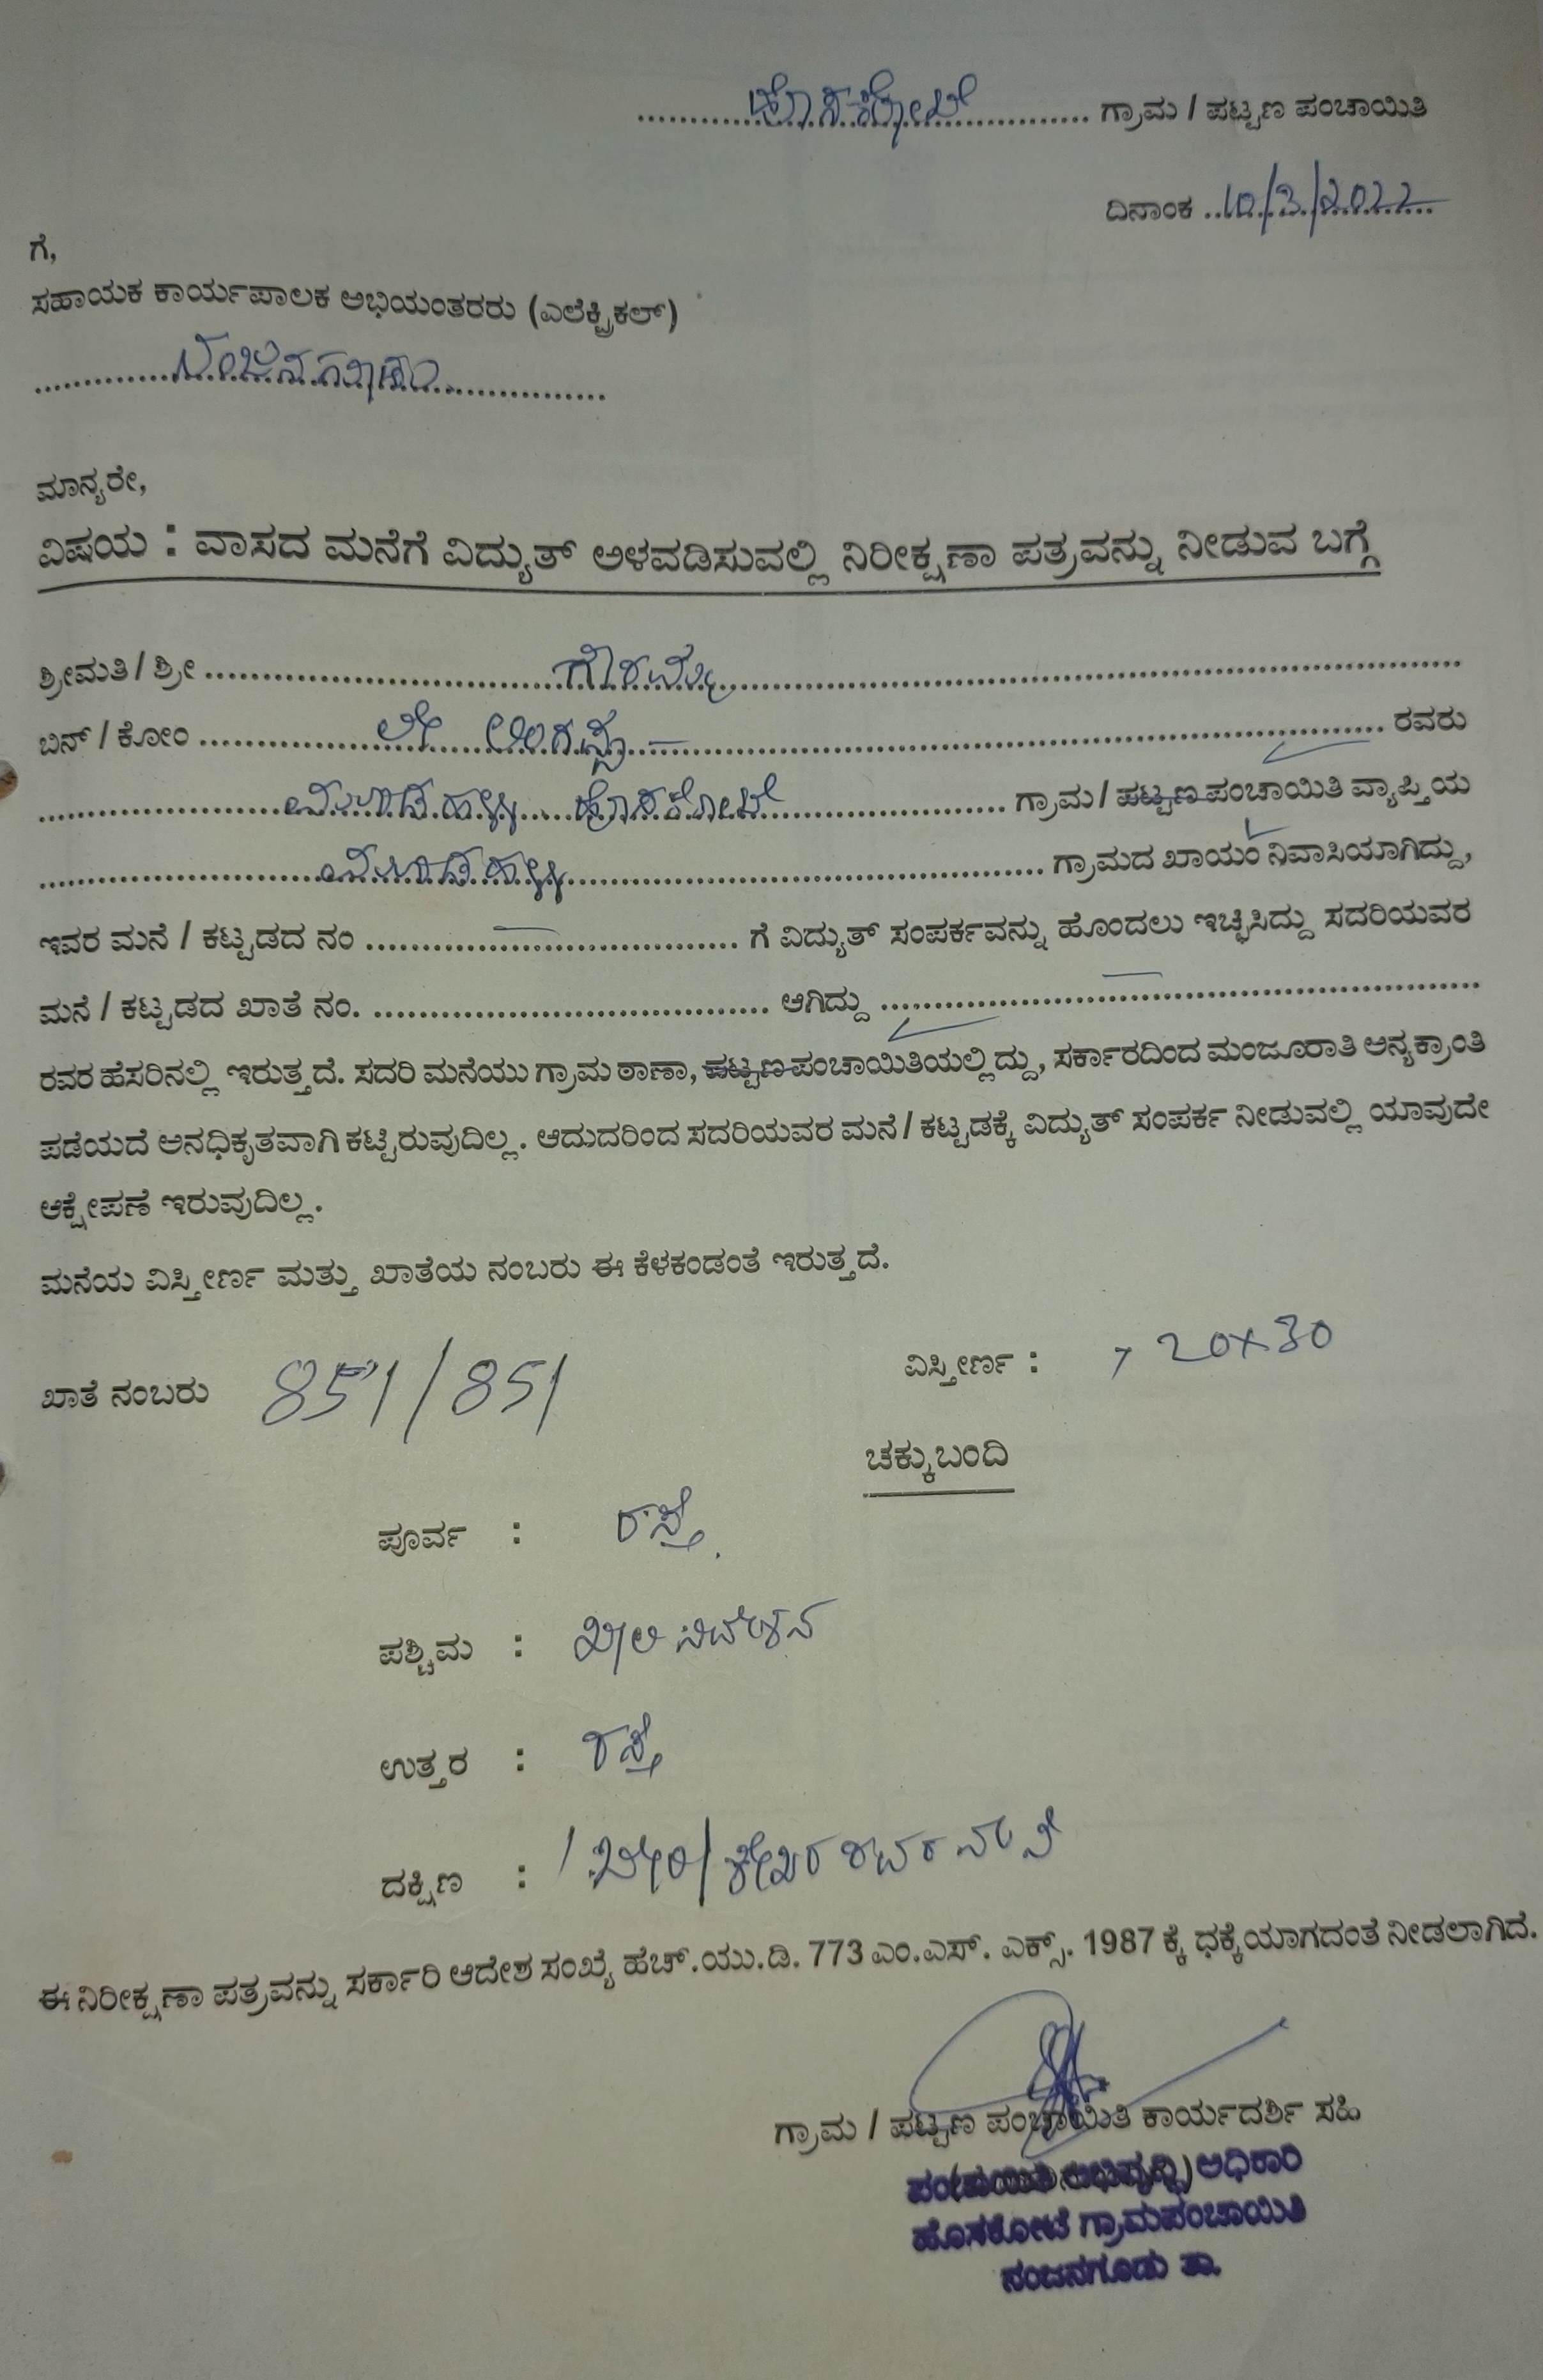 ಹೊಸಕೋಟೆ ಗ್ರಾಮ / ಪಟ್ಟಣ ಪಂಚಾಯಿತಿ
ದಿನಾಂಕ 10/3/2022
ಗೆ,
ಸಹಾಯಕ ಕಾರ್ಯಪಾಲಕ ಅಭಿಯಂತರರು (ಎಲೆಕ್ಟ್ರಿಕಲ್)
ನಂಜನಗೂಡು
ಮಾನ್ಯರೇ,
ವಿಷಯ : ವಾಸದ ಮನೆಗೆ ವಿದ್ಯುತ್ ಅಳವಡಿಸುವಲ್ಲಿ ನಿರೀಕ್ಷಣಾ ಪತ್ರವನ್ನು ನೀಡುವ ಬಗ್ಗೆ
ಶ್ರೀಮತಿ / ಶ್ರೀ ಗೌರಮ್ಮ
ಬಿನ್ / ಕೋಂ ಲೇ ಲಿಂಗಪ್ಪ ರವರು
ಹೊಸಕೋಟೆ ಗ್ರಾಮ / ಪಟ್ಟಣ ಪಂಚಾಯಿತಿ ವ್ಯಾಪ್ತಿಯ
ಗ್ರಾಮದ ಖಾಯಂ ನಿವಾಸಿಯಾಗಿದ್ದು,
ಇವರ ಮನೆ / ಕಟ್ಟಡದ ನಂ ಗೆ ವಿದ್ಯುತ್ ಸಂಪರ್ಕವನ್ನು ಹೊಂದಲು ಇಚ್ಛಿಸಿದ್ದು ಸದರಿಯವರ
ಮನೆ / ಕಟ್ಟಡದ ಖಾತೆ ನಂ. ಆಗಿದ್ದು
ರವರ ಹೆಸರಿನಲ್ಲಿ ಇರುತ್ತದೆ. ಸದರಿ ಮನೆಯು ಗ್ರಾಮ ಠಾಣಾ, ಪಟ್ಟಣ ಪಂಚಾಯಿತಿಯಲ್ಲಿದ್ದು, ಸರ್ಕಾರದಿಂದ ಮಂಜೂರಾತಿ ಅನ್ಯಕ್ರಾಂತಿ
ಪಡೆಯದೆ ಅನಧಿಕೃತವಾಗಿ ಕಟ್ಟಿರುವುದಿಲ್ಲ. ಆದುದರಿಂದ ಸದರಿಯವರ ಮನೆ / ಕಟ್ಟಡಕ್ಕೆ ವಿದ್ಯುತ್ ಸಂಪರ್ಕ ನೀಡುವಲ್ಲಿ ಯಾವುದೇ
ಆಕ್ಷೇಪಣೆ ಇರುವುದಿಲ್ಲ.
ಮನೆಯ ವಿಸ್ತೀರ್ಣ ಮತ್ತು ಖಾತೆಯ ನಂಬರು ಈ ಕೆಳಕಂಡಂತೆ ಇರುತ್ತದೆ.
ಖಾತೆ ನಂಬರು 851/851 ವಿಸ್ತೀರ್ಣ : 20x30
ಚಕ್ಕುಬಂದಿ
ಪೂರ್ವ : ರಸ್ತೆ
ಪಶ್ಚಿಮ : ಖಾಲಿ ನಿವೇಶನ
ಉತ್ತರ : ರಸ್ತೆ
ದಕ್ಷಿಣ :
ಈ ನಿರೀಕ್ಷಣಾ ಪತ್ರವನ್ನು ಸರ್ಕಾರಿ ಆದೇಶ ಸಂಖ್ಯೆ ಹೆಚ್.ಯು.ಡಿ. 773 ಎಂ.ಎಸ್. ಎಕ್ಸ್. 1987 ಕ್ಕೆ ಧಕ್ಕೆಯಾಗದಂತೆ ನೀಡಲಾಗಿದೆ.
ಗ್ರಾಮ / ಪಟ್ಟಣ ಪಂಚಾಯಿತಿ ಕಾರ್ಯದರ್ಶಿ ಸಹಿ
ಪಂಚಾಯಿತಿ ಅಭಿವೃದ್ಧಿ ಅಧಿಕಾರಿ
ಹೊಸಕೋಟೆ ಗ್ರಾಮಪಂಚಾಯಿತಿ
ನಂಜನಗೂಡು ತಾ.